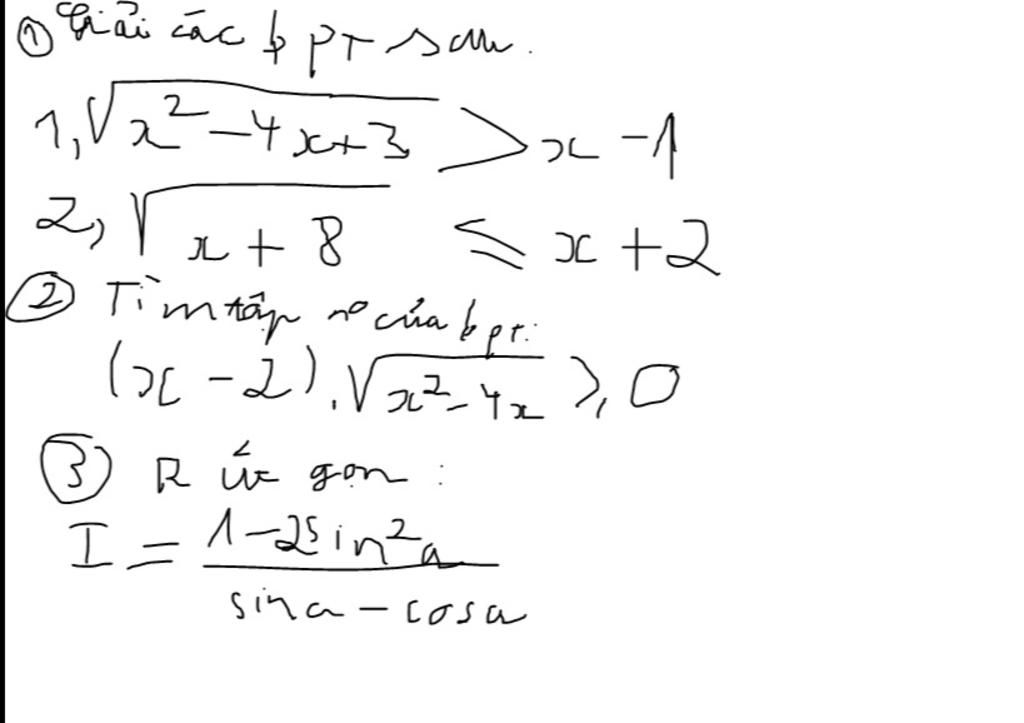 ① Giải các bpT sau.
1, √(x² - 4x + 3) > x - 1
2, √(x + 8) ≤ x + 2
② Tìm tập n⁰ của bpt:
(x - 2).√(x² - 4x) ≥ 0
③ Rút gọn :
I = (1 - 2sin²a)/(sina - cosa)